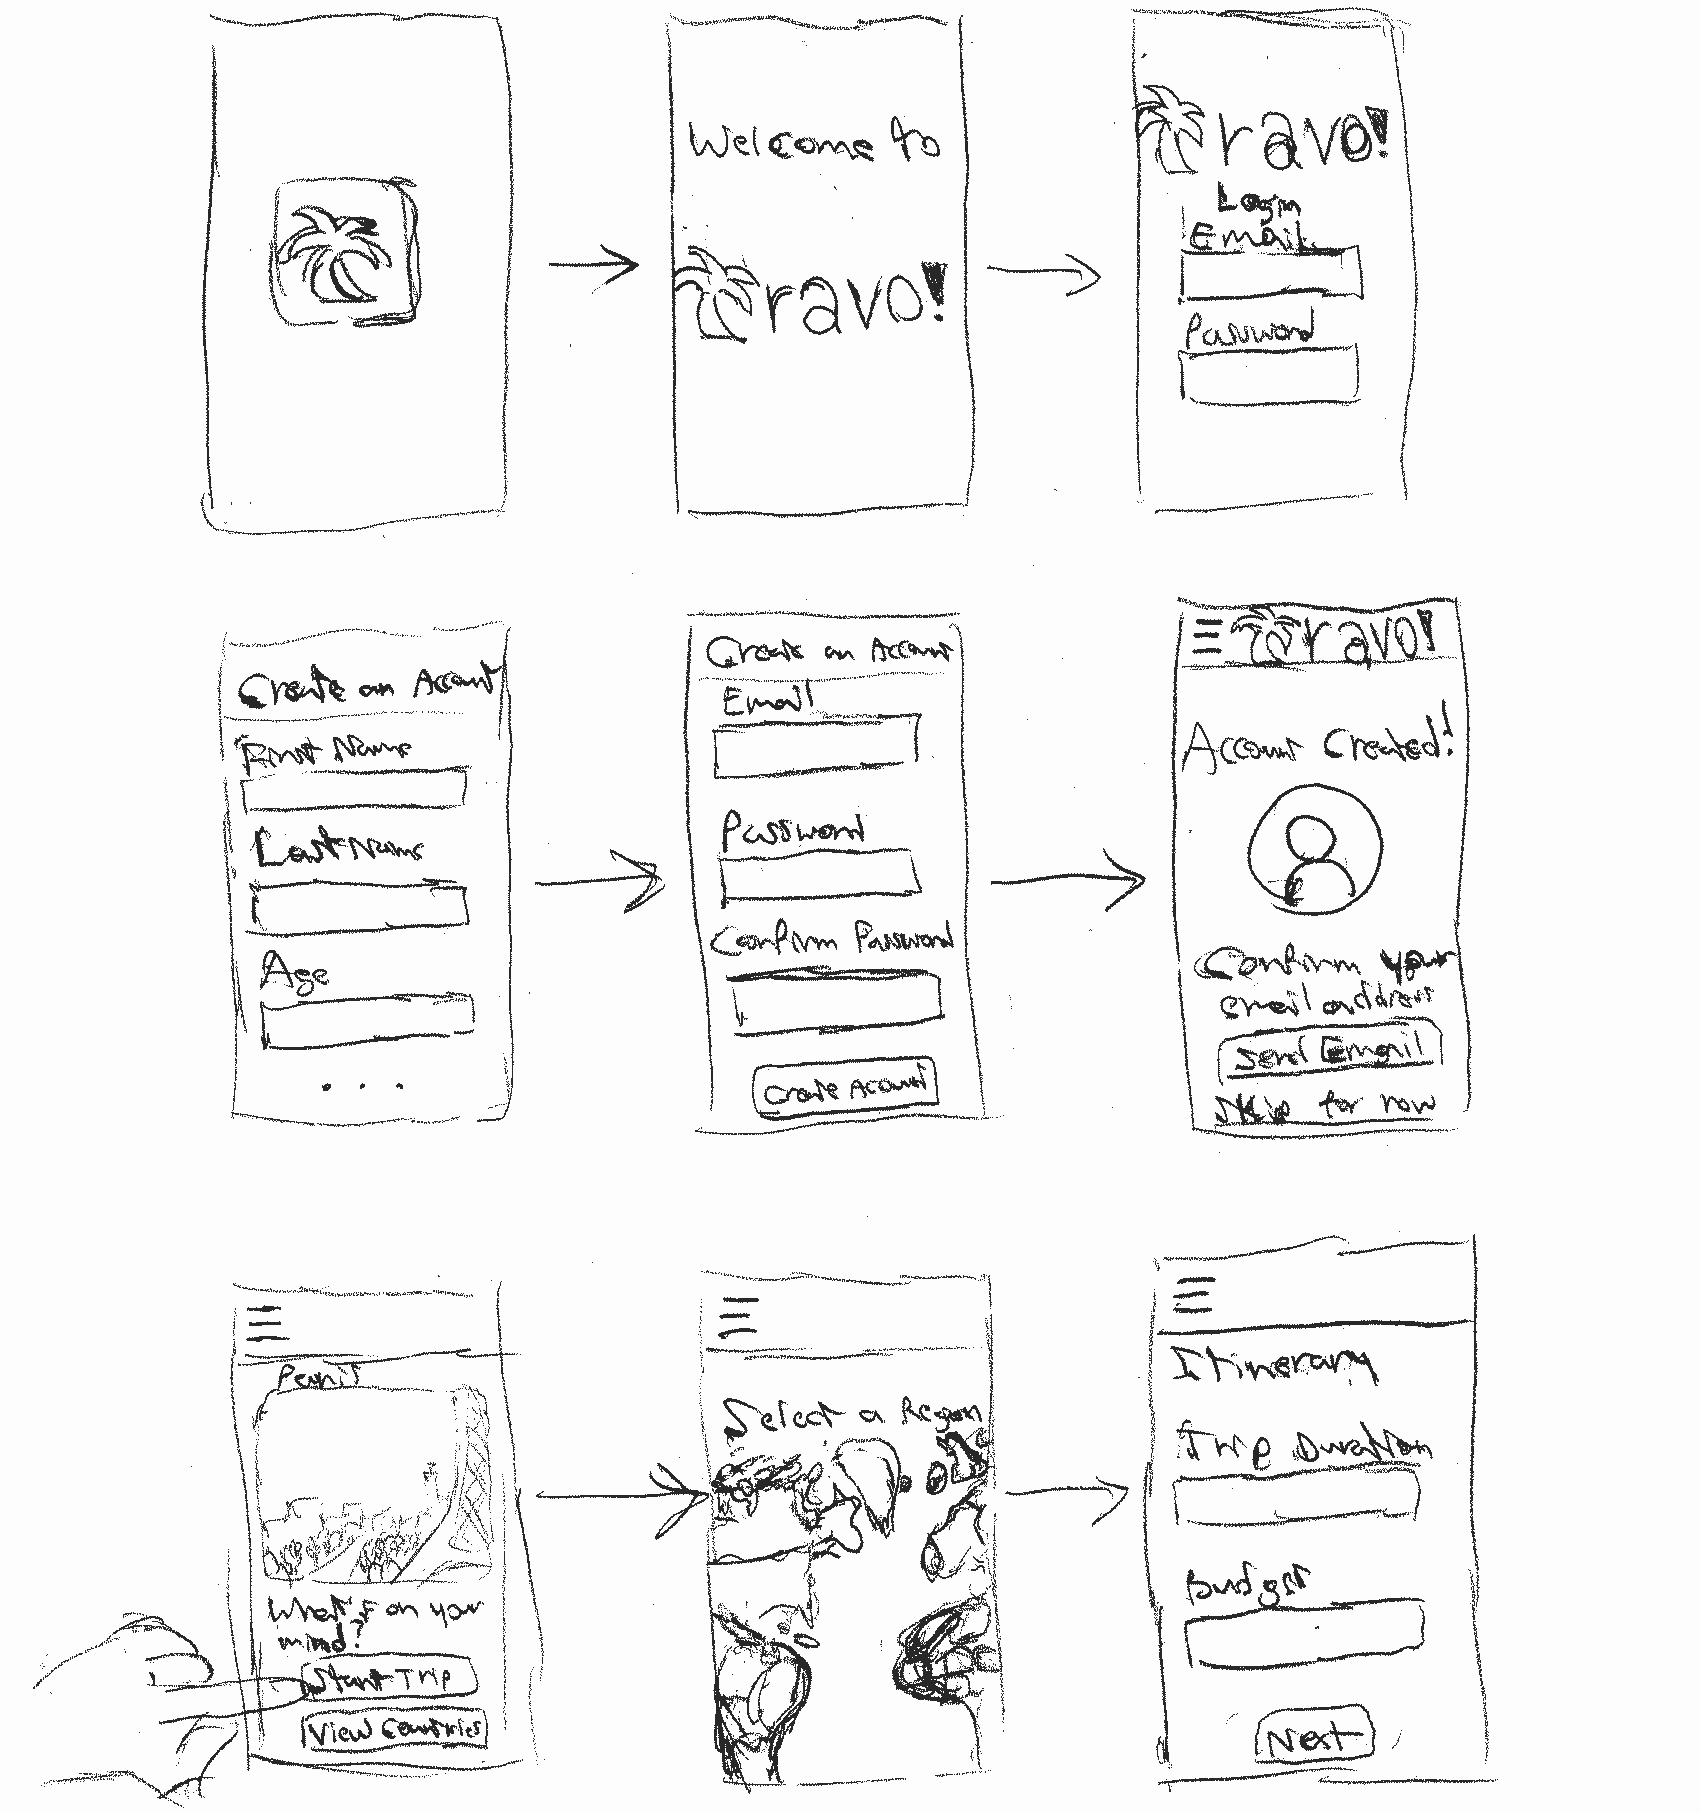 Welcome to
ravo!
ravo!
Login
Email
Password
Create an Account
First Name
Last Name
Age
...
Create an Account
Email
Password
Confirm Password
Create Account
ravo!
Account Created!
Confirm your
email address
Send Email
Skip for now
What's on your
mind?
Start Trip
View Countries
Select a Region
Itinerary
Trip Duration
Budget
Next